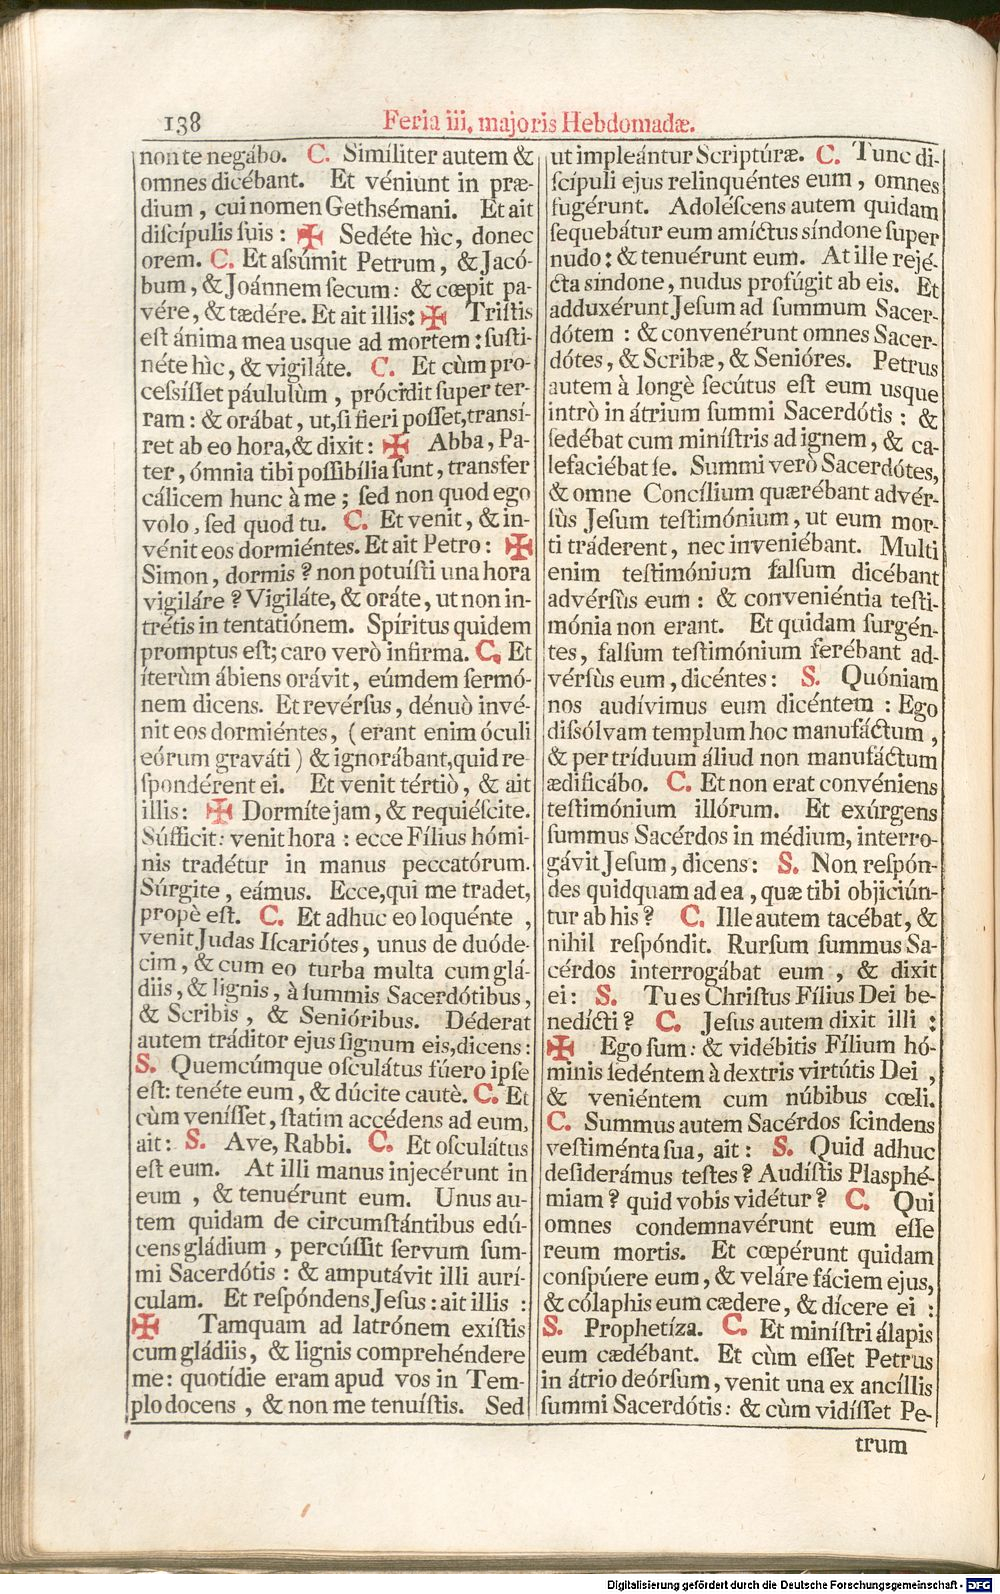 138
Feria iii. majoris Hebdomadæ.
non te negábo. C. Simíliter autem &
omnes dicébant. Et véniunt in præ-
dium, cui nomen Gethsémani. Et ait
diſcípulis ſuis: ✠ Sedéte hìc, donec
orem. C. Et aſſúmit Petrum, & Jacó-
bum, & Joánnem ſecum: & cœpit pa-
vére, & tædére. Et ait illis: ✠ Triſtis
eſt ánima mea usque ad mortem: ſuſti-
néte hìc, & vigiláte. C. Et cùm pro-
ceſsíſſet páululùm, prócidit ſuper ter-
ram: & orábat, ut, ſi fieri poſſet, transí-
ret ab eo hora, & dixit: ✠ Abba, Pa-
ter, ómnia tibi poſſibília ſunt, transfer
cálicem hunc à me; ſed non quod ego
volo, ſed quod tu. C. Et venit, & in-
vénit eos dormiéntes. Et ait Petro: ✠
Simon, dormis? non potuíſti una hora
vigiláre? Vigiláte, & oráte, ut non in-
trétis in tentatiónem. Spíritus quidem
promptus eſt; caro verò infirma. C. Et
íterùm ábiens orávit, eúmdem ſermó-
nem dicens. Et revérſus, dénuò invé-
nit eos dormiéntes, (erant enim óculi
eórum graváti) & ignorábant, quid re-
ſpondérent ei. Et venit tértiò, & ait
illis: ✠ Dormíte jam, & requiéſcite.
Súfficit: venit hora: ecce Fílius hómi-
nis tradétur in manus peccatórum.
Súrgite, eámus. Ecce, qui me tradet,
propè eſt. C. Et adhuc eo loquénte,
venit Judas Iſcariótes, unus de duóde-
cim, & cum eo turba multa cum glá-
diis, & lignis, à ſummis Sacerdótibus,
& Scribis, & Senióribus. Déderat
autem tráditor ejus ſignum eis, dicens:
S. Quemcúmque oſculátus fúero ipſe
eſt: tenéte eum, & dúcite cautè. C. Et
cùm veníſſet, ſtatim accédens ad eum,
ait: S. Ave, Rabbi. C. Et oſculátus
eſt eum. At illi manus injecérunt in
eum, & tenuérunt eum. Unus au-
tem quidam de circumſtántibus edú-
cens gládium, percúſſit ſervum ſum-
mi Sacerdótis: & amputávit illi aurí-
culam. Et reſpóndens Jeſus: ait illis:
✠ Tamquam ad latrónem exíſtis
cum gládiis, & lignis comprehéndere
me: quotídie eram apud vos in Tem-
plo docens, & non me tenuíſtis. Sed
ut impleántur Scriptúræ. C. Tunc di-
ſcípuli ejus relinquéntes eum, omnes
fugérunt. Adoléſcens autem quidam
ſequebátur eum amíctus síndone ſuper
nudo: & tenuérunt eum. At ille rejé-
cta sindone, nudus profúgit ab eis. Et
adduxérunt Jeſum ad ſummum Sacer-
dótem: & convenérunt omnes Sacer-
dótes, & Scribæ, & Senióres. Petrus
autem à longè ſecútus eſt eum usque
intrò in átrium ſummi Sacerdótis: &
ſedébat cum miníſtris ad ignem, & ca-
lefaciébat ſe. Summi verò Sacerdótes,
& omne Concílium quærébant advér-
ſùs Jeſum teſtimónium, ut eum mor-
ti tráderent, nec inveniébant. Multi
enim teſtimónium falſum dicébant
advérſùs eum: & conveniéntia teſti-
mónia non erant. Et quidam ſurgén-
tes, falſum teſtimónium ferébant ad-
vérſùs eum, dicéntes: S. Quóniam
nos audívimus eum dicéntem: Ego
diſſólvam templum hoc manufáctum,
& per tríduum áliud non manufáctum
ædificábo. C. Et non erat convéniens
teſtimónium illórum. Et exúrgens
ſummus Sacérdos in médium, interro-
gávit Jeſum, dicens: S. Non reſpón-
des quidquam ad ea, quæ tibi objiciún-
tur ab his? C. Ille autem tacébat, &
nihil reſpóndit. Rurſum ſummus Sa-
cérdos interrogábat eum, & dixit
ei: S. Tu es Chriſtus Fílius Dei be-
nedícti? C. Jeſus autem dixit illi:
✠ Ego ſum: & vidébitis Fílium hó-
minis ſedéntem à dextris virtútis Dei,
& veniéntem cum núbibus cœli.
C. Summus autem Sacérdos ſcindens
veſtiménta ſua, ait: S. Quid adhuc
deſiderámus teſtes? Audíſtis Plasphé-
miam? quid vobis vidétur? C. Qui
omnes condemnavérunt eum eſſe
reum mortis. Et cœpérunt quidam
conſpúere eum, & veláre fáciem ejus,
& cólaphis eum cædere, & dícere ei:
S. Prophetíza. C. Et miníſtri álapis
eum cædébant. Et cùm eſſet Petrus
in átrio deórſum, venit una ex ancíllis
ſummi Sacerdótis: & cùm vidíſſet Pe-
trum
Digitalisierung gefördert durch die Deutsche Forschungsgemeinschaft - DFG